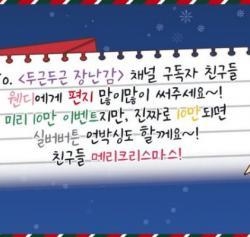 To. <두근두근 장난감> 채널 구독자 친구들
웬디에게 편지 많이많이 써주세요~!
미리 10만 이벤트지만, 진짜로 10만되면
실버버튼 언박싱도 할게요~!
친구들 메리크리스마스!